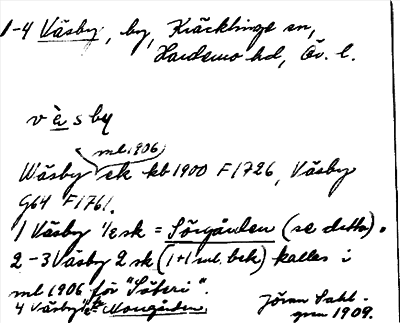 1-4 Väsby, by, Kräcklinge sn,
Hardemo hd, Ör. l.
vèsby
ml 1906
Wäsby ek kb 1900 F1726, Väsby
G64 F1761.
1 Väsby 1/2 sk = Sörgården (se detta).
2-3 Väsby 2 sk (1+1 ml. bek) kallas i
ml 1906 för "Säteri".
4 Väsby Norrgården.
Jöran Sahl-
gren 1909.